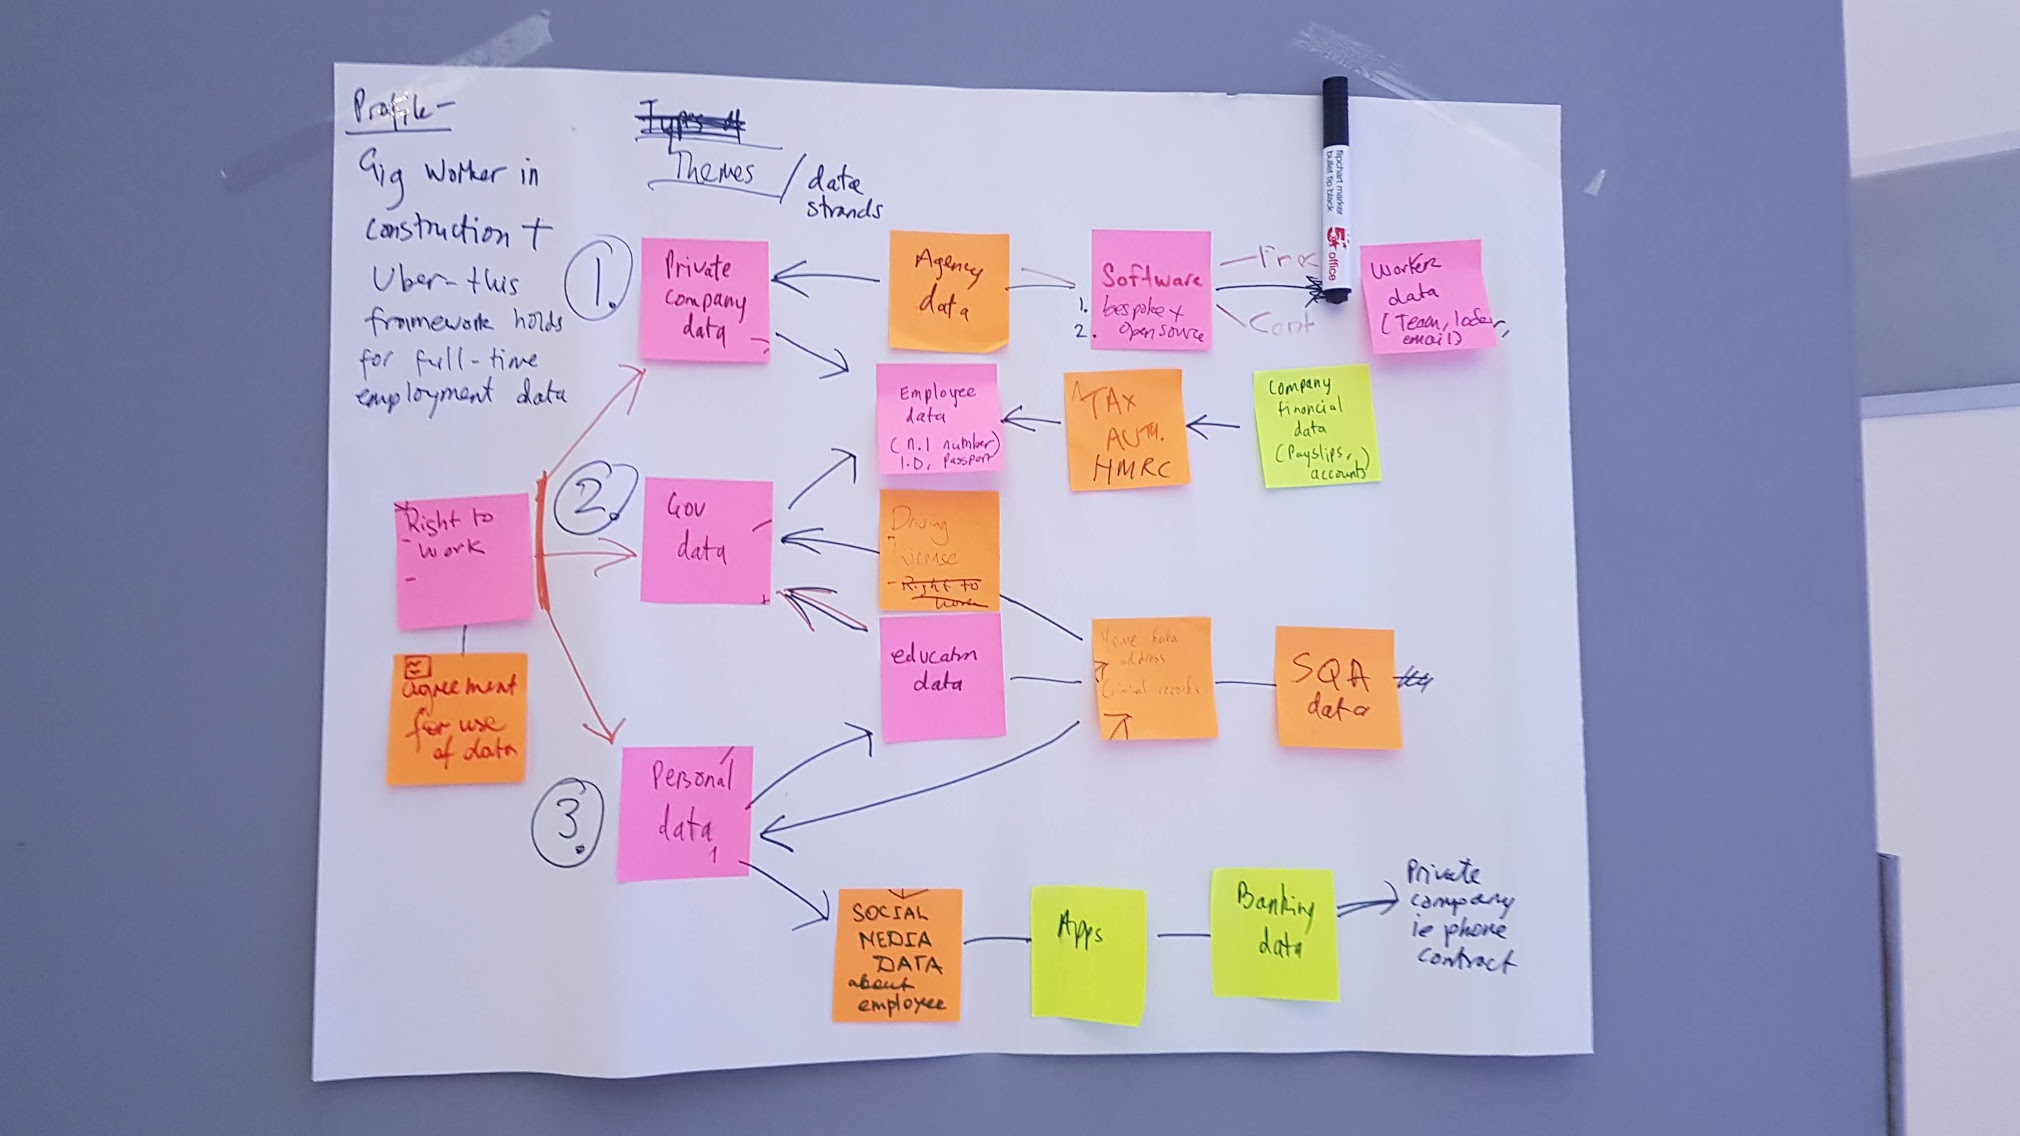 Profile-
Gig Worker in
construction +
Uber-this
framework holds
for full-time
employment data
Themes / data
strands
1.
Private
company
data
Agency
data
Software
1. bespoke +
2. open source
Worker
data
(Team,
email)
flipchart marker
bullet tip black
5 office
Employee
data
(n.i number)
I.D, Passport
TAX
AUTH.
HMRC
Company
financial
data
(Payslips,
accounts)
2.
Right to
work
Gov
data
Driving
license
- Right to
work
agreement
for use
of data
education
data
Home data
address
Criminal records
SQA
data
3.
Personal
data
SOCIAL
MEDIA
DATA
about
employee
Apps
Banking
data
Private
company
ie phone
contract